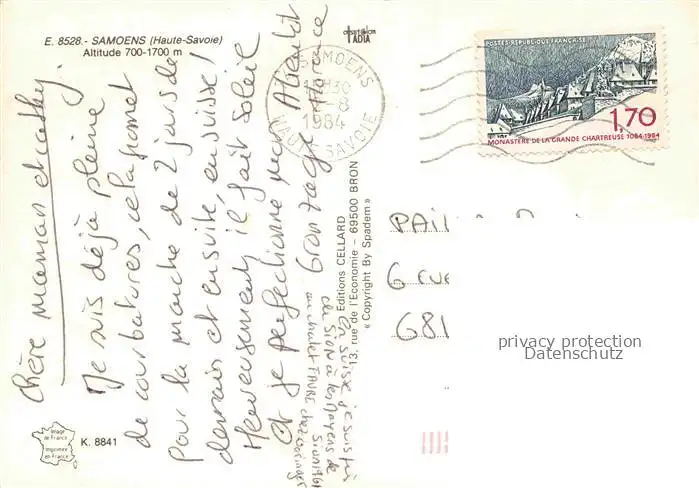 E. 8528.- SAMOENS (Haute-Savoie)
Altitude 700-1700 m
Chère maman et cathy,
Je suis déjà pleine
de courbatures, cela promet
pour la marche de 2 jours de
demain et ensuite, en suisse !
Heureusement, il fait soleil
et je perfectionne mon
Abientôt
Florence
en suisse, je suis
de SION à les Mayens de
au chalet FAVRE chez
Editions CELLARD
13, rue de l'Economie - 69500 BRON
« Copyright By Spadem »
SAMOENS
1984
HAUTE SAVOIE
POSTES REPUBLIQUE FRANÇAISE
1,70
MONASTÈRE DE LA GRANDE CHARTREUSE 1084-1984
6
681
privacy protection
Datenschutz
Image
de France
Imprimée
en France
K. 8841